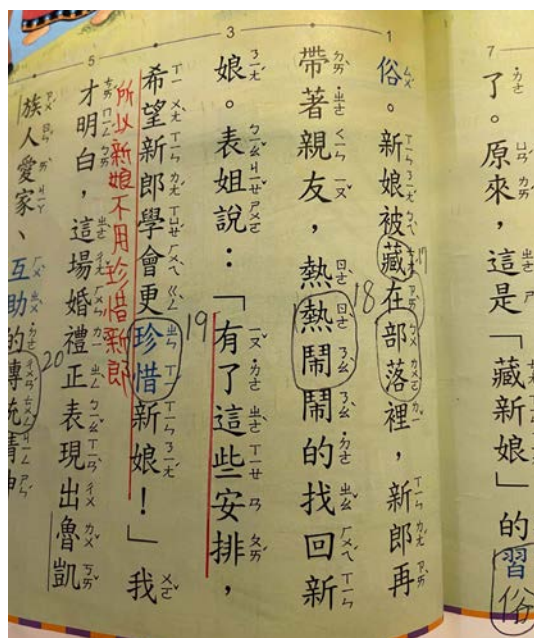 7
了。原來，這是「藏新娘」的習俗
1
俗。新娘被藏在部落裡，新郎再
17
帶著親友，熱熱鬧鬧的找回新
18
3
娘。表姐說：「有了這些安排，
19
希望新郎學會更珍惜新娘！」我
所以新娘不用珍惜新郎
5
才明白，這場婚禮正表現出魯凱
族人愛家、互助的傳統精神
20